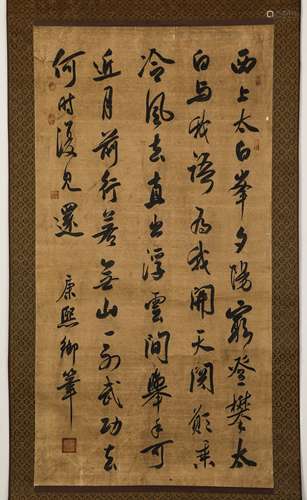 西上太白峯夕陽窮登攀太
白与我語為我開天関願乘
冷風去直出浮雲間舉手可
近月前行若無山一別武功去
何时復見還
康熙御筆